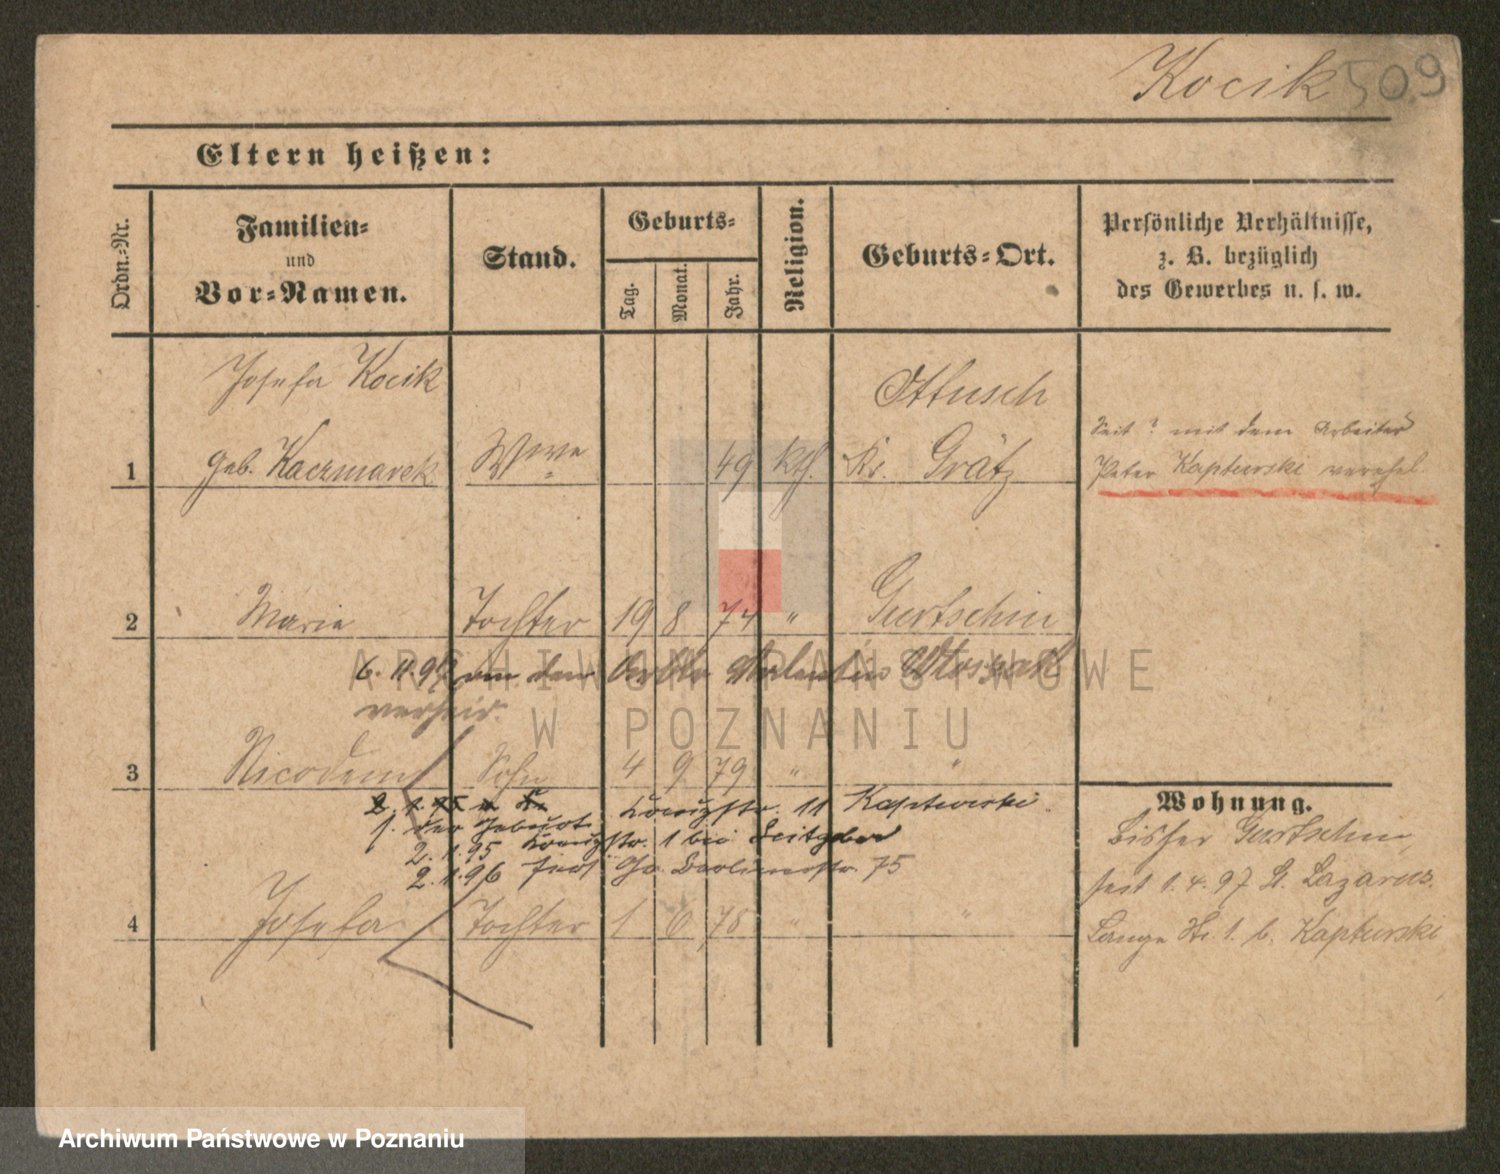 Kocik 509
Eltern heißen:
Ordn.-Nr.
Familien-
und
Vor-Namen.
Stand.
Geburts-
Tag.
Monat.
Jahr.
Religion.
Geburts-Ort.
Persönliche Verhältnisse,
z. B. bezüglich
des Gewerbes u. s. w.
Josefa Kocik Ottusch
Seit ? mit dem Arbeiter
1 geb. Kaczmarek Wwe 49 kth. Kr. Grätz
Peter Kapturski verehel.
2 Marie Tochter 19 8 74 " Gurtschin
6. 11. 97 an den Valentin
verheir.
3 Nicodem Sohn 4 9 79 " "
Wohnung.
2. 1. 95 Kreuzstr. 11 Kapturski
bisher Gurtschin,
2. 1. 95 Kreuzstr. 1 bei Leitgeber
2. 1. 96 Gr. Berlinerstr. 75
seit 1. 4. 97 St. Lazarus.
4 Josefa Tochter 1 6 78 " "
Lange Str. 1. b. Kapturski
ARCHIWUM PAŃSTWOWE
W POZNANIU
Archiwum Państwowe w Poznaniu